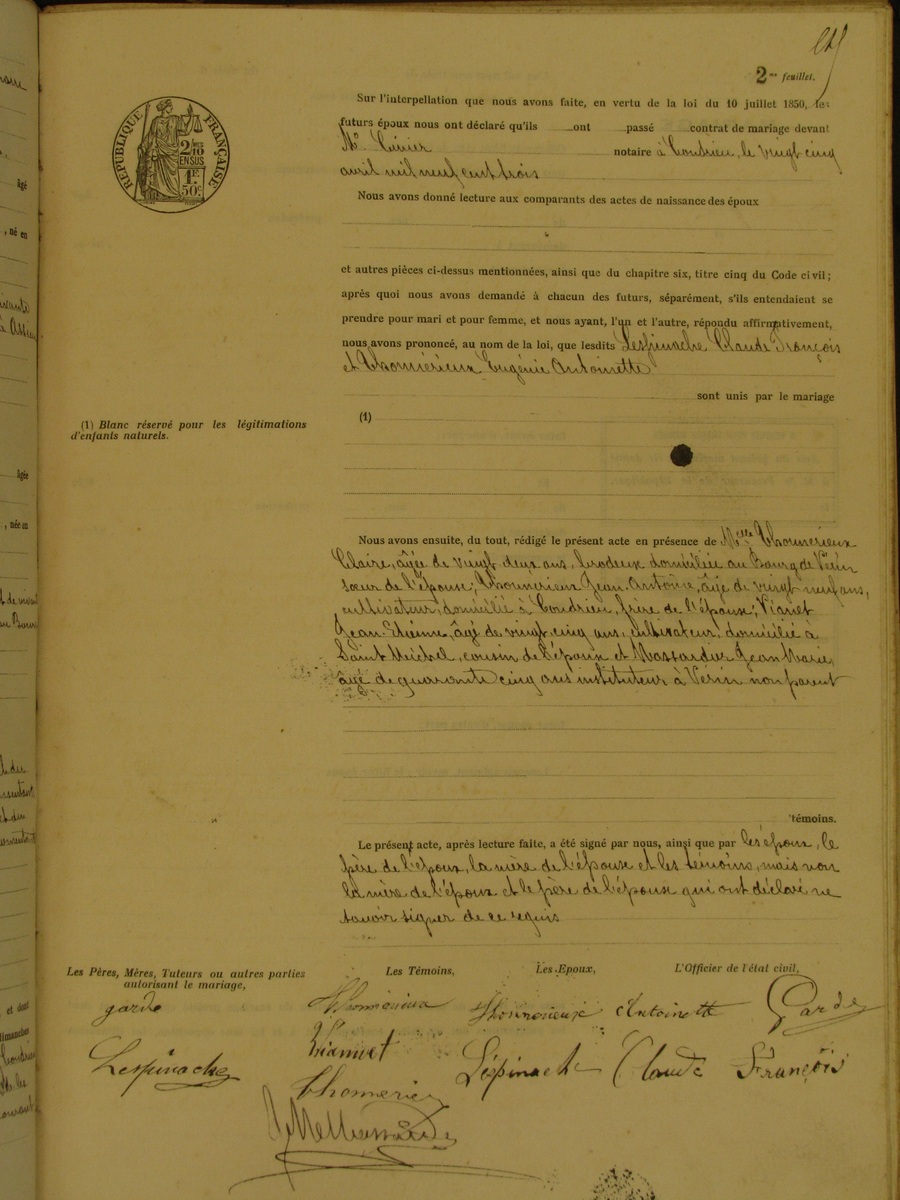 2me feuillet.
RÉPUBLIQUE FRANÇAISE
2 MES
10
EN SUS
1F.
50c.
Sur l'interpellation que nous avons faite, en vertu de la loi du 10 juillet 1850, les
futurs époux nous ont déclaré qu'ils ont passé contrat de mariage devant
Me notaire à Condrieu, le vingt cinq
avril mil neuf cent trois
Nous avons donné lecture aux comparants des actes de naissance des époux
et autres pièces ci-dessus mentionnées, ainsi que du chapitre six, titre cinq du Code civil;
après quoi nous avons demandé à chacun des futurs, séparément, s'ils entendaient se
prendre pour mari et pour femme, et nous ayant, l'un et l'autre, répondu affirmativement,
nous avons prononcé, au nom de la loi, que lesdits Lespinache Claude François
et Thomérieux Eugénie Antoinette
sont unis par le mariage
(1)
(1) Blanc réservé pour les légitimations
d'enfants naturels.
Nous avons ensuite, du tout, rédigé le présent acte en présence de Melle Thomerieux
Claire, âgée de vingt deux ans, brodeuse domiciliée au Bourg de Vérin
sœur de l'épouse; Thomerieux Jean Antoine, âgé de vingt neuf ans,
cultivateur, domicilié à Condrieu, frère de l'épouse; Vianet
Jean Etienne, âgé de vingt cinq ans, cultivateur, domicilié à
Saint Michel, cousin de l'époux et Massardier Jean Marie,
âgé de quarante cinq ans instituteur à Vérin non parent
témoins.
Le présent acte, après lecture faite, a été signé par nous, ainsi que par les époux, le
père de l'époux, la mère de l'épouse et les témoins, mais non
la mère de l'époux et le père de l'épouse qui ont déclaré ne
savoir signer de ce requis
Les Pères, Mères, Tuteurs ou autres parties
autorisant le mariage,
Les Témoins,
Les Epoux,
L'Officier de l'état civil,
garde
Thomérieux
Thomerieux Antoinette
Garde
Lespinache
Viannet
Léspinache Claude François
Thomerieux